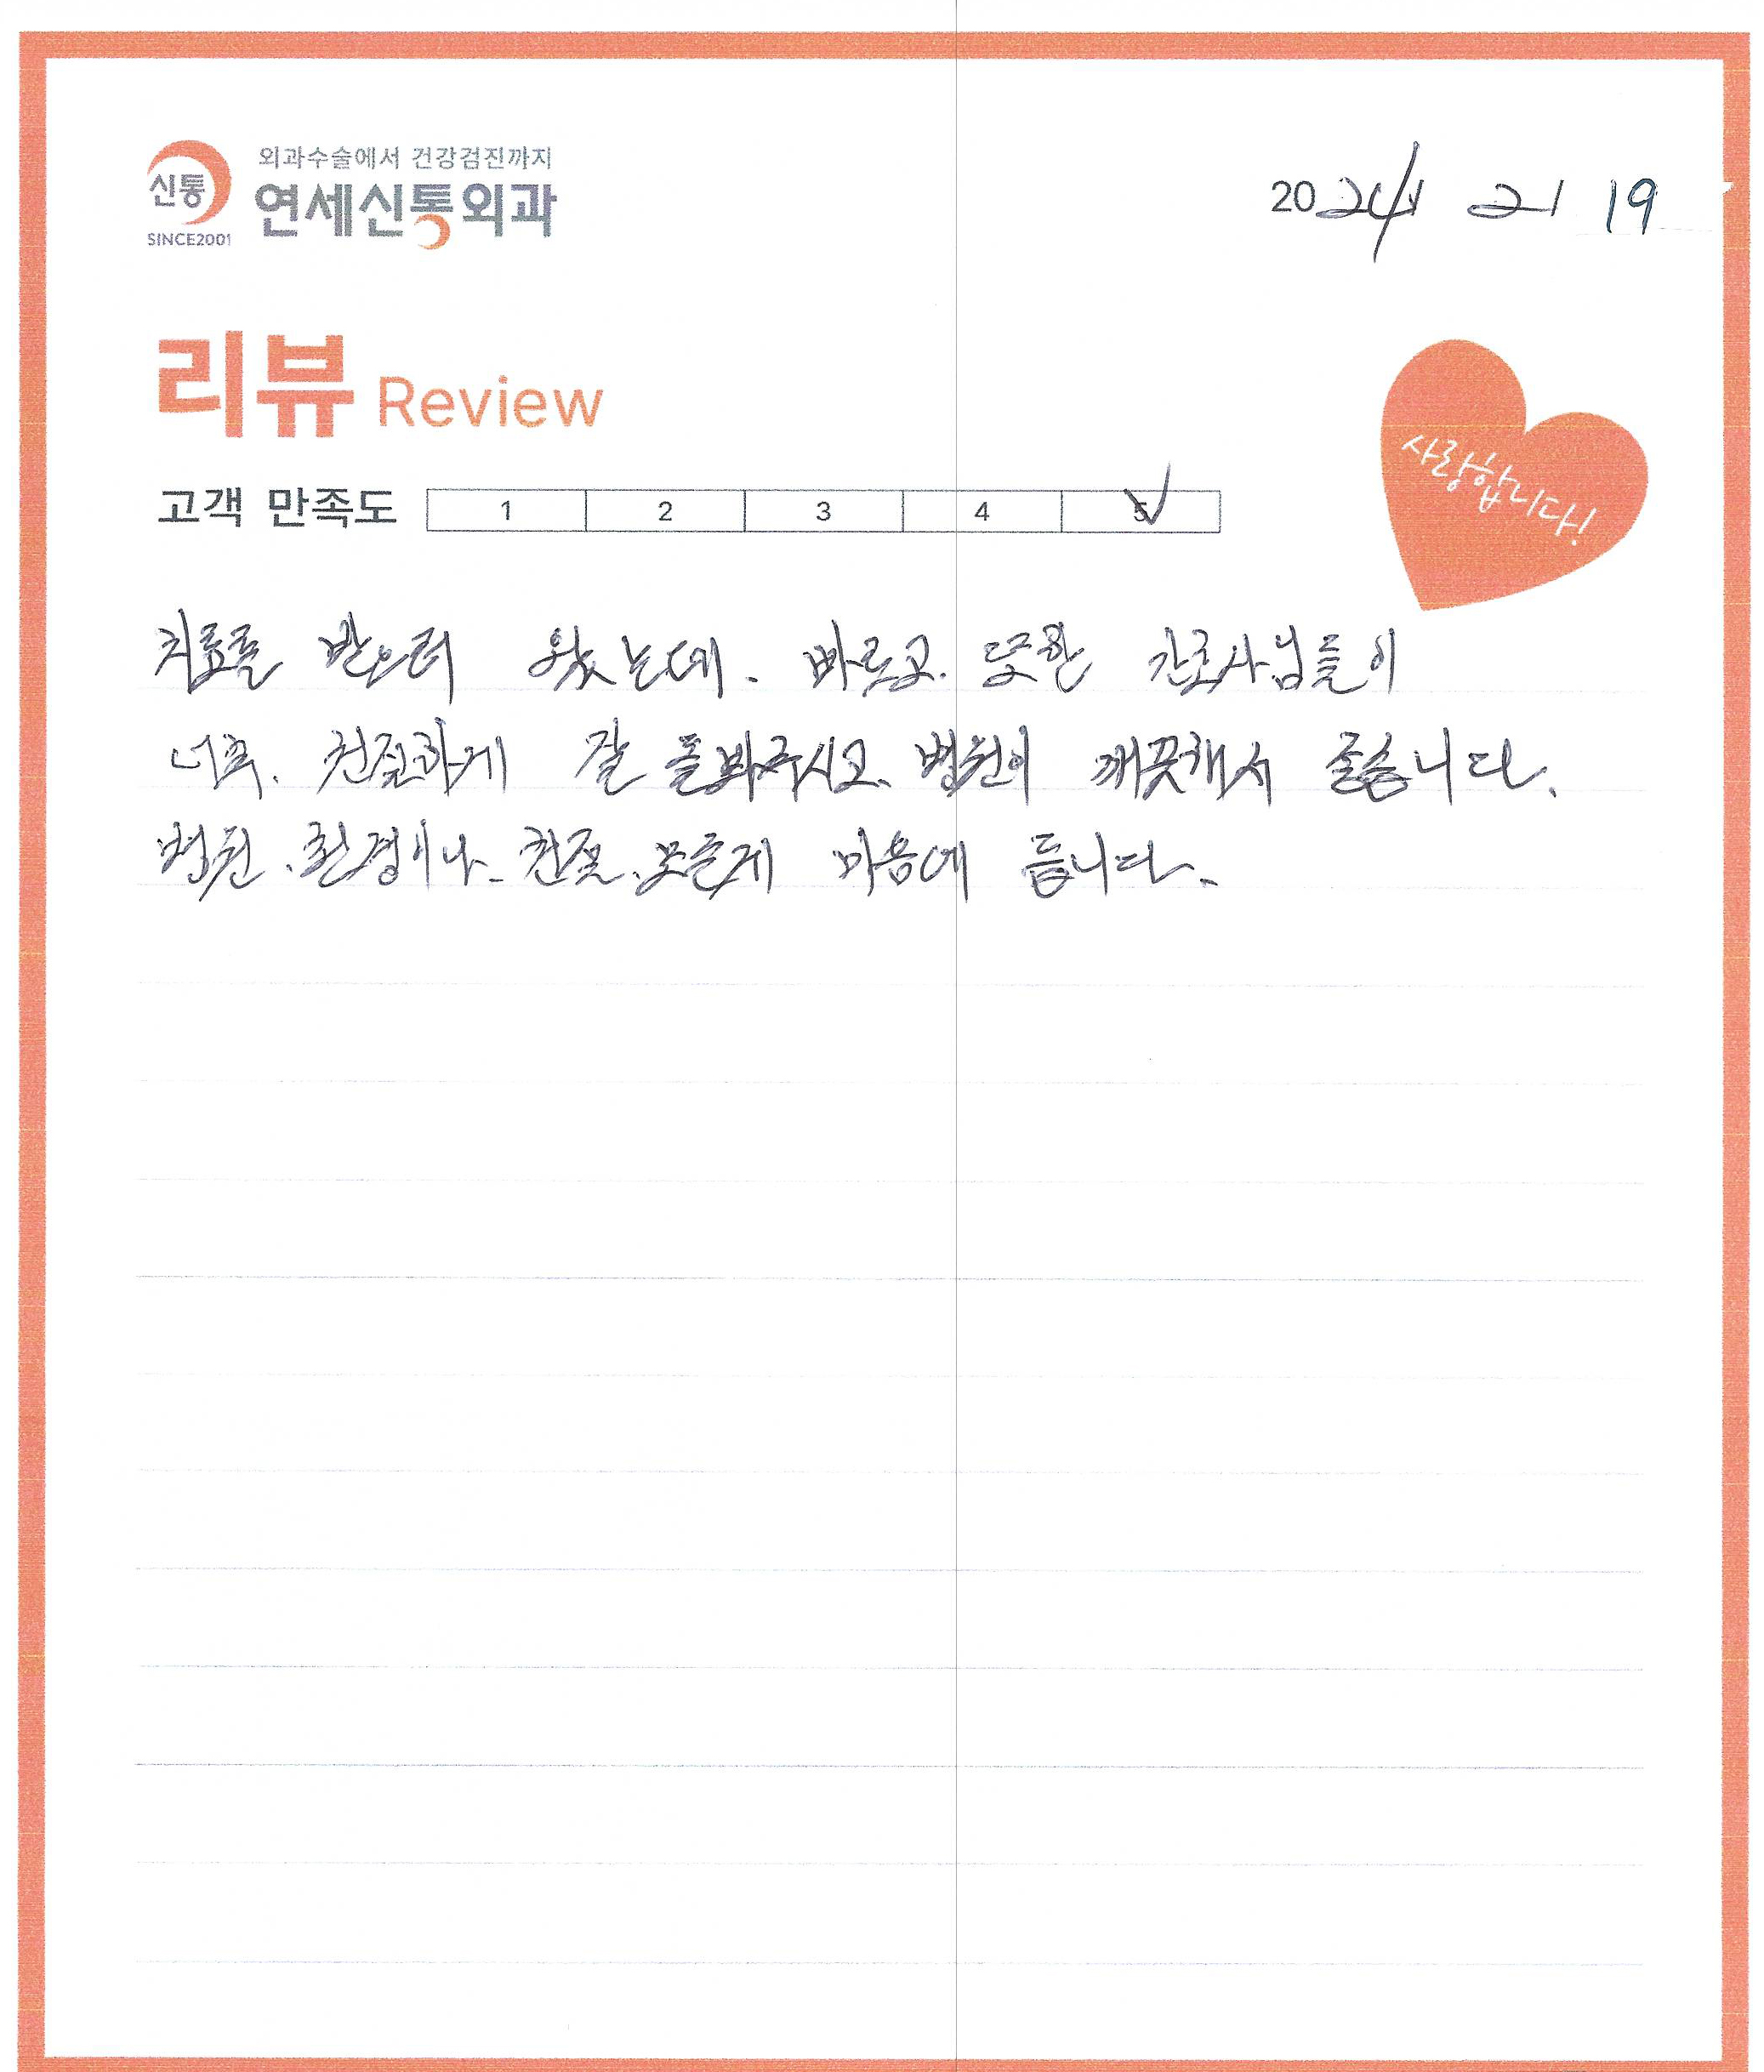 외과수술에서 건강검진까지
신통 연세신통외과
SINCE2001
2024 2 19
리뷰 Review
사랑합니다!
고객 만족도 1 2 3 4 5
치료를 받으러 왔는데. 빠르고. 또한 간호사님들이
너무. 친절하게 잘 돌봐주시고. 병원이 깨끗해서 좋습니다.
병원. 환경이나. 친절. 모든게 마음에 듭니다.